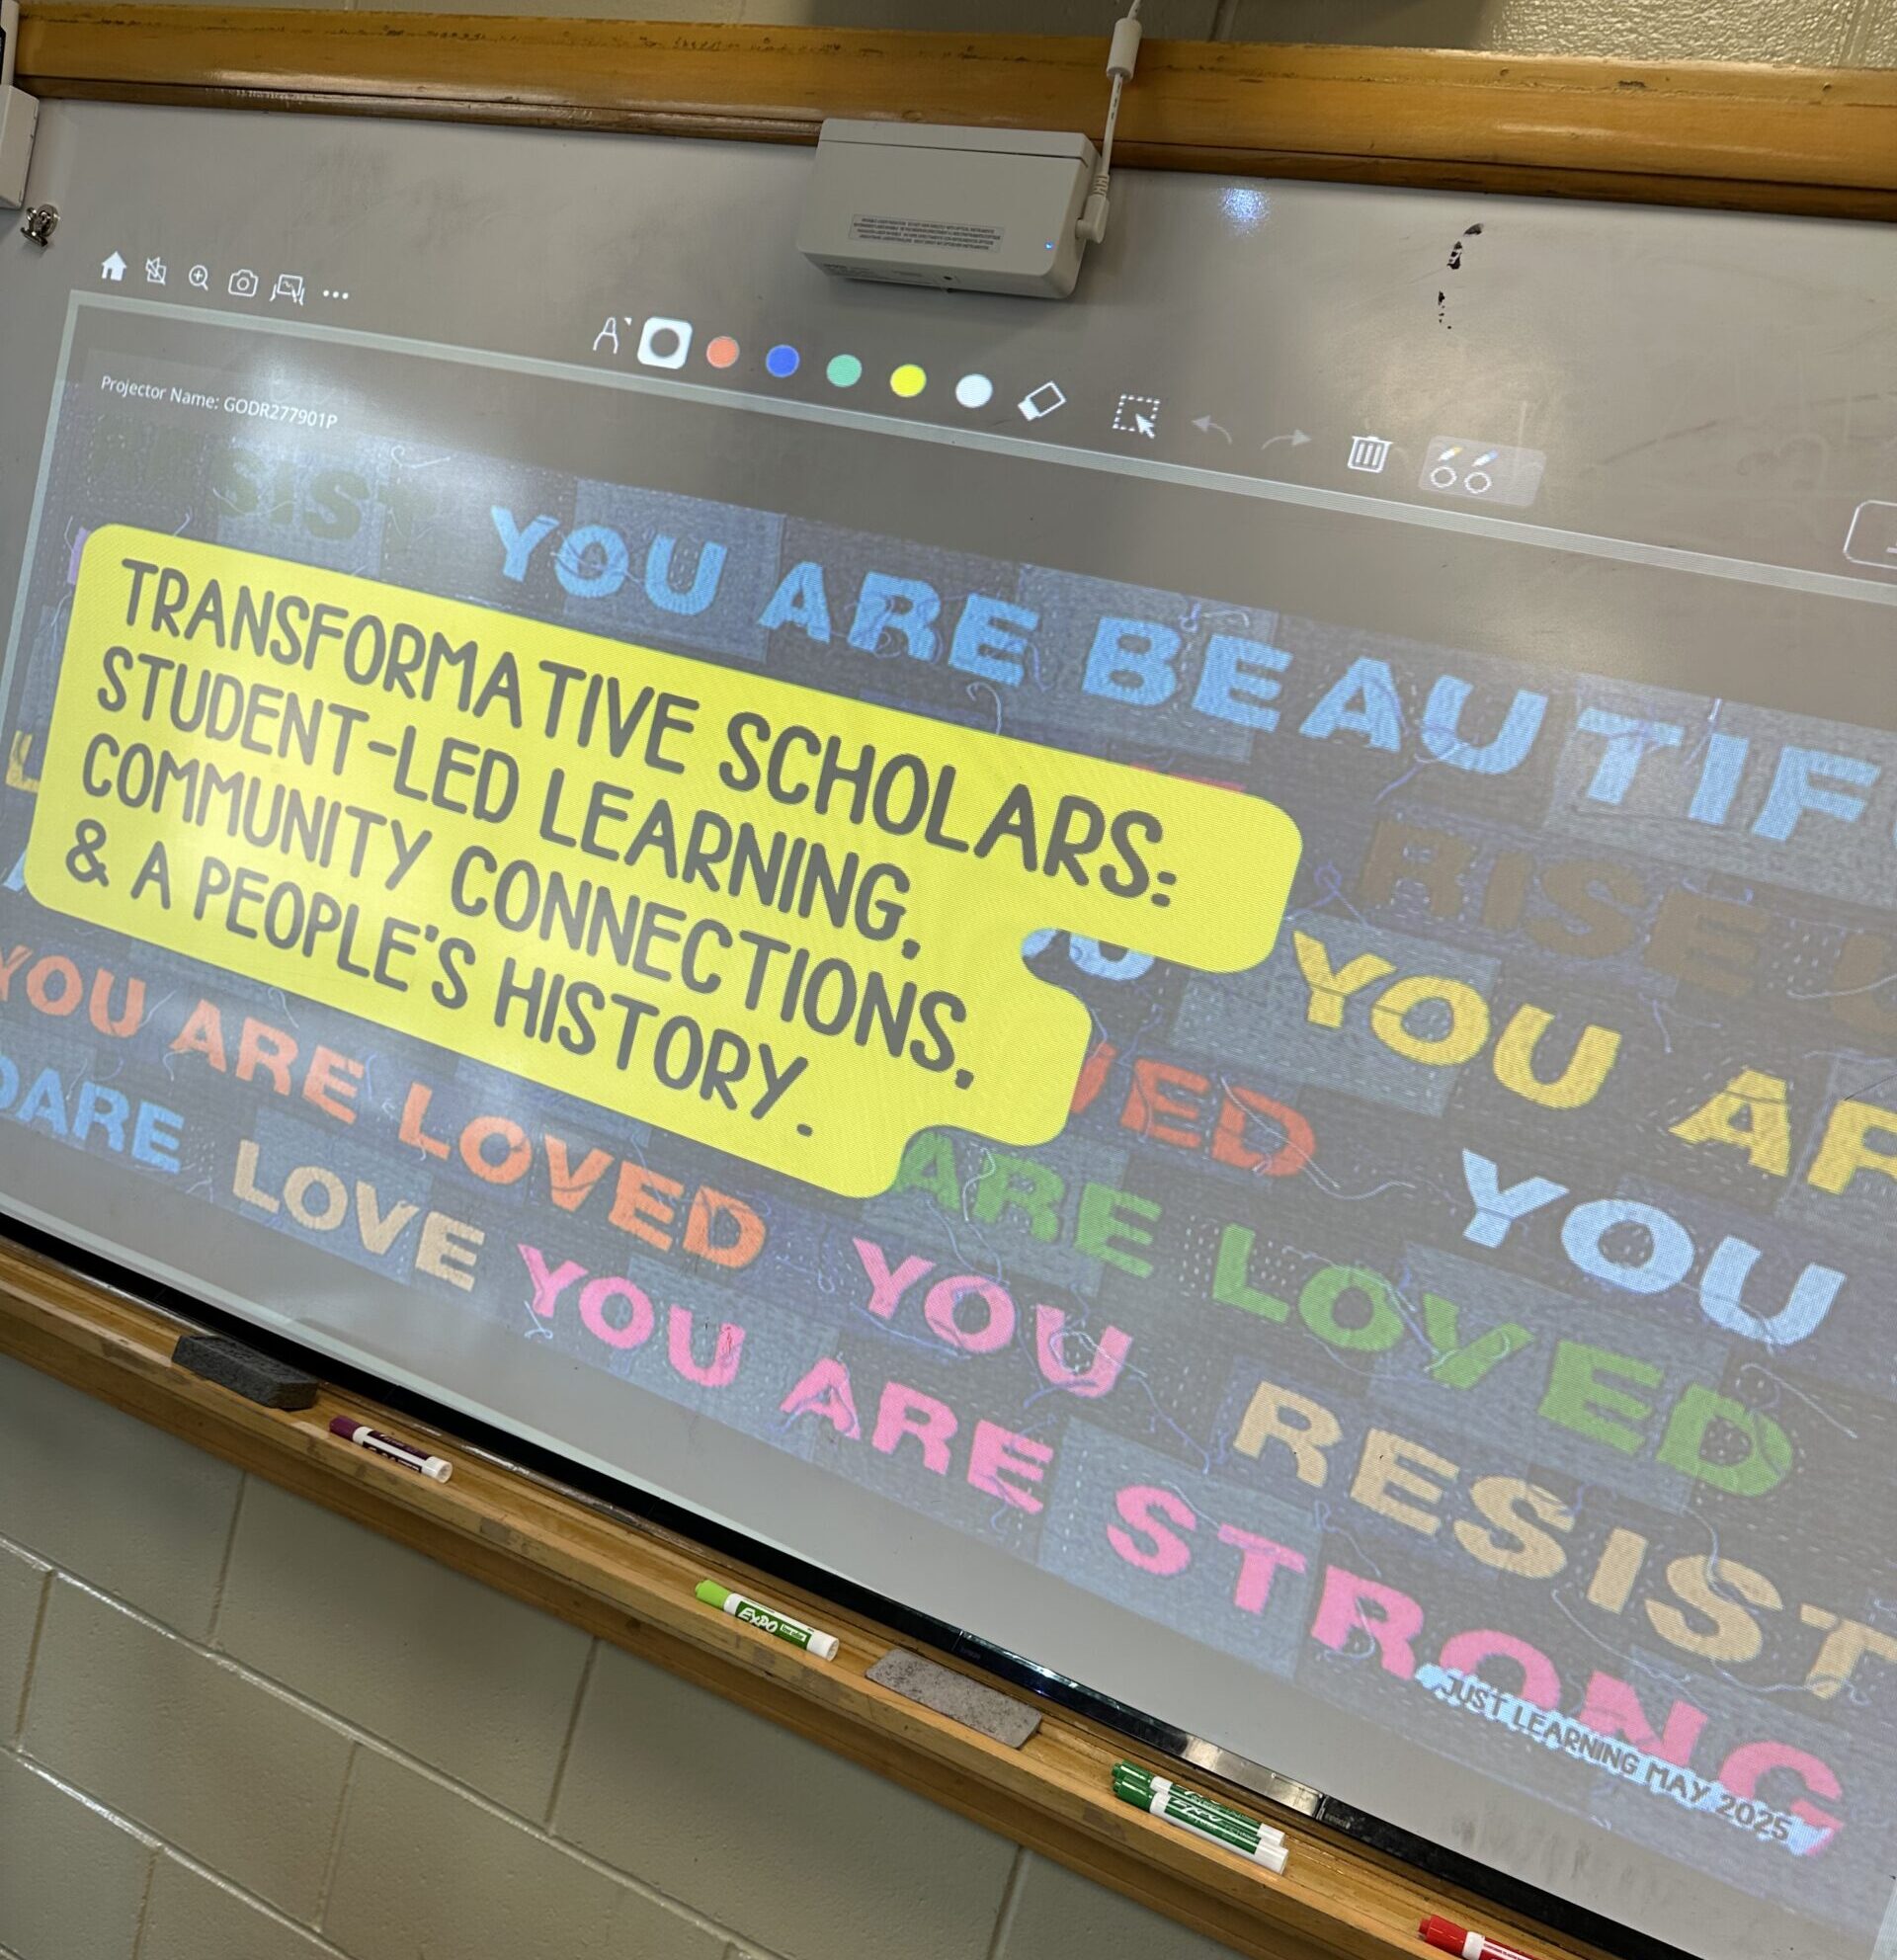 Projector Name: GODR277901P
SIST YOU ARE BEAUTIF
TRANSFORMATIVE SCHOLARS:
STUDENT-LED LEARNING,
COMMUNITY CONNECTIONS,
& A PEOPLE'S HISTORY.
RISE
YOU AR
YOU ARE LOVED
VED
YOU
DARE LOVE YOU ARE STRONG
ARE LOVED
YOU RESIST
JUST LEARNING MAY 2025
EXPO